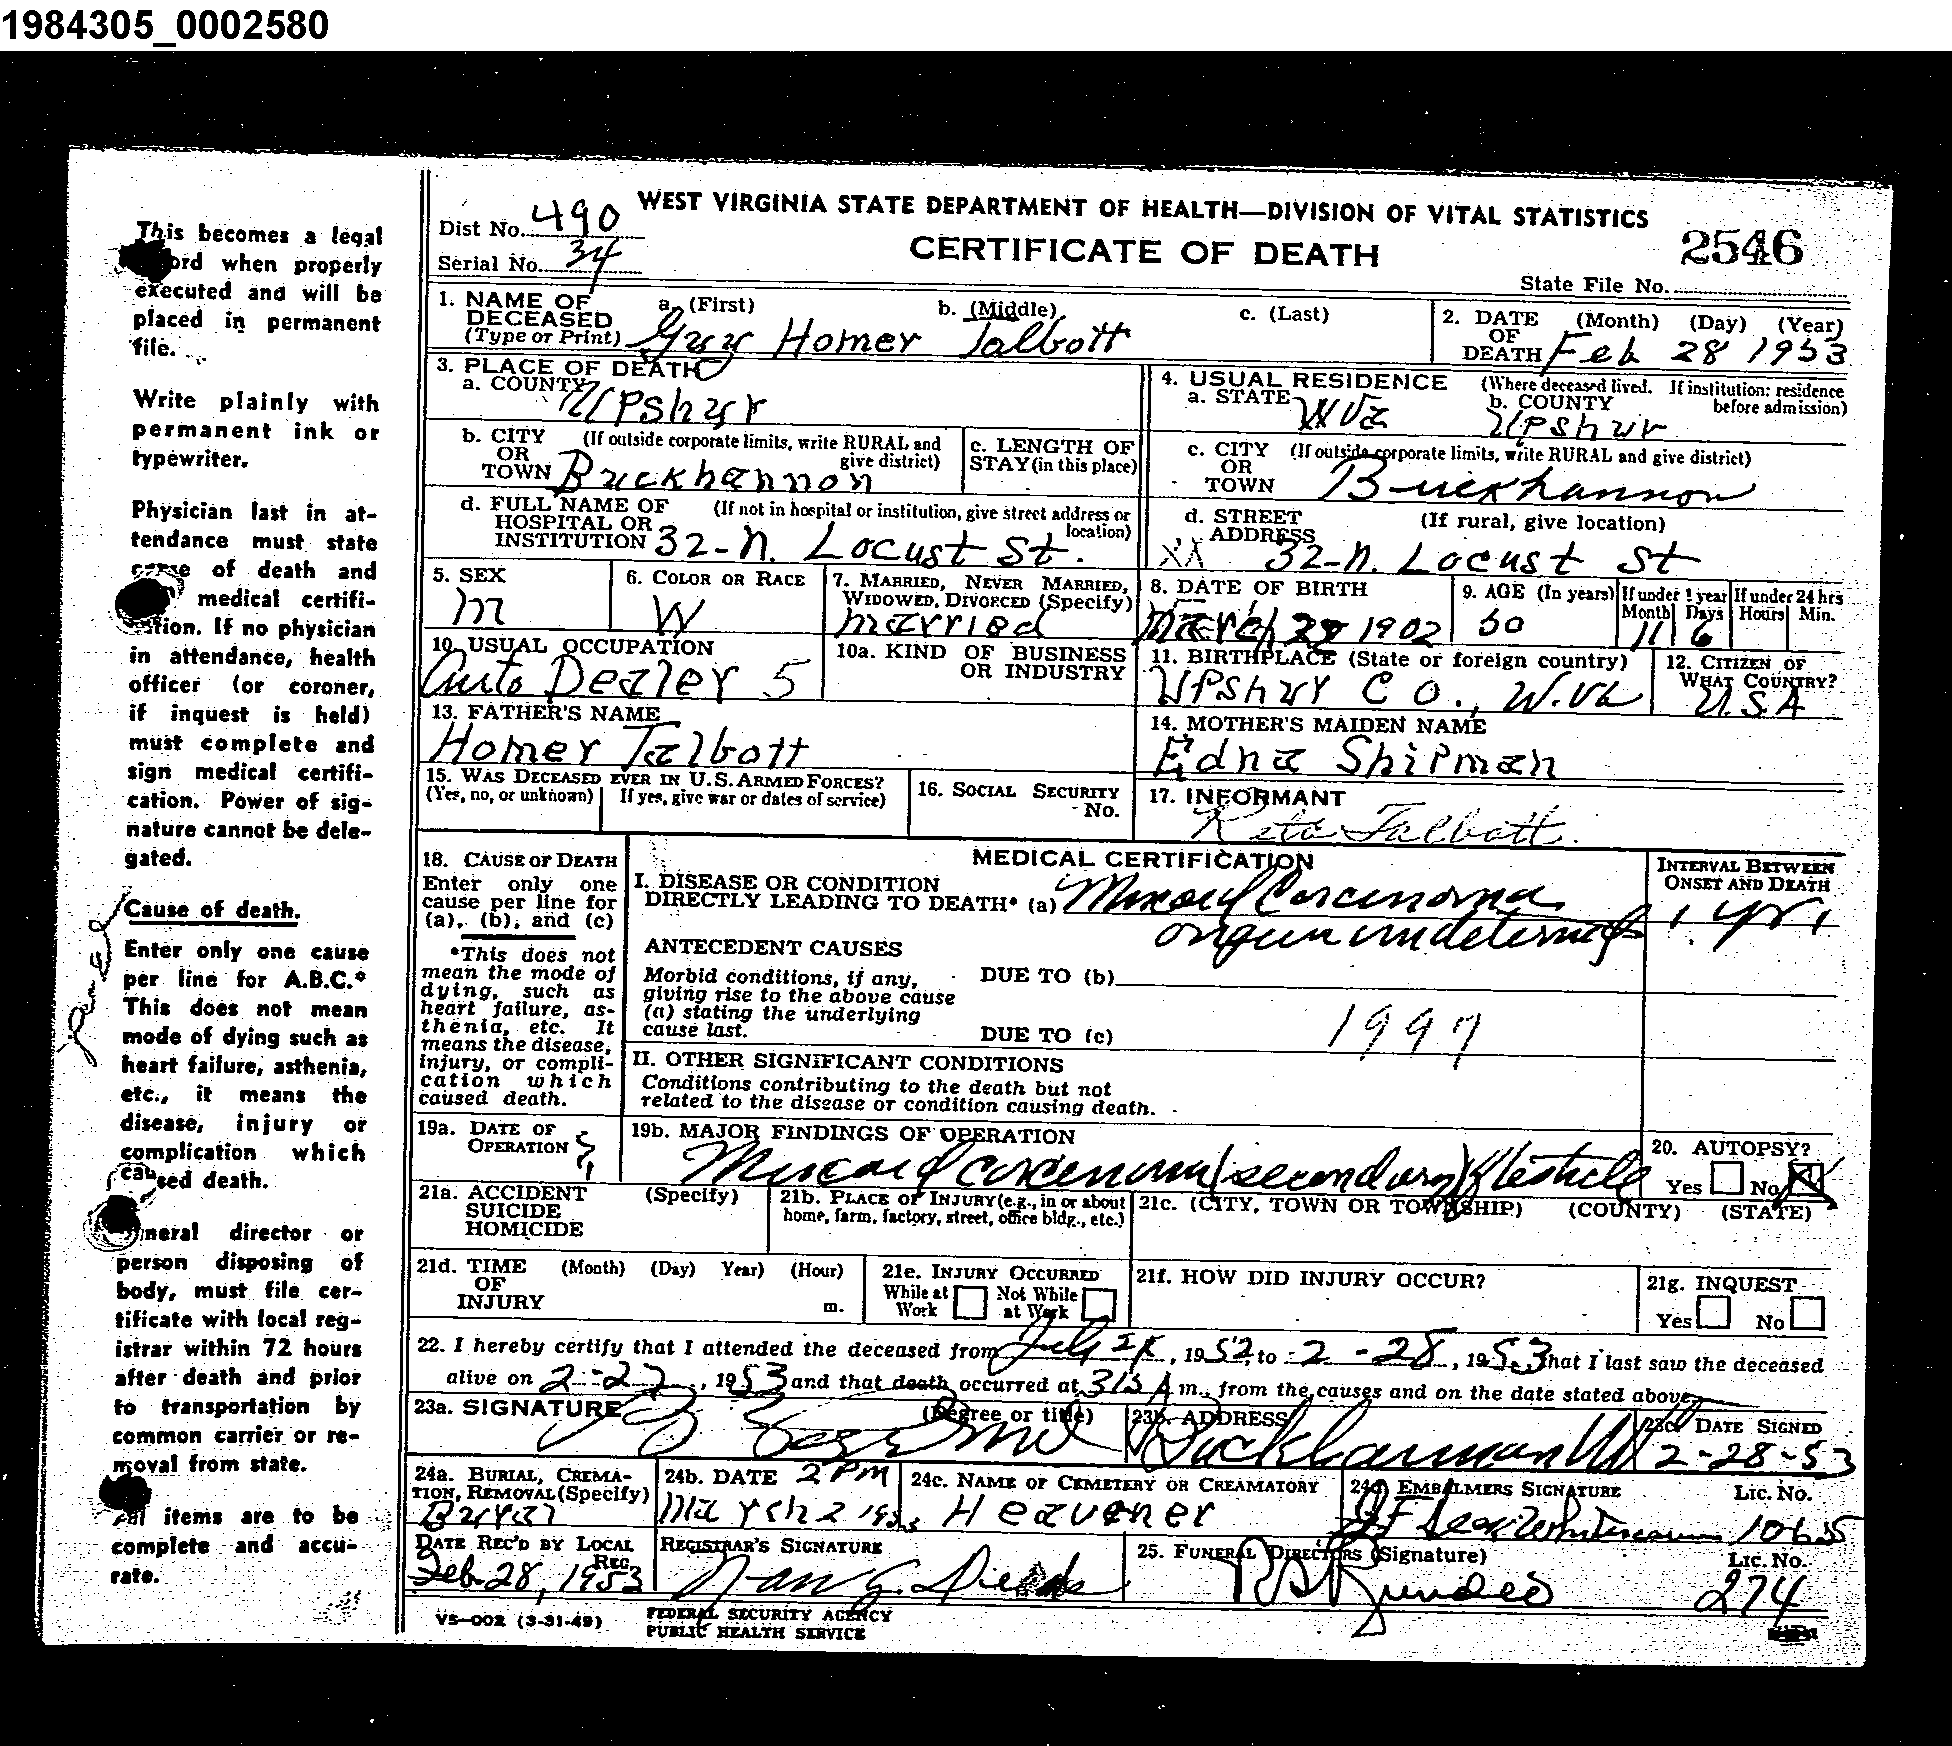 1984305_0002580
This becomes a legal
record when properly
executed and will be
placed in permanent
file.
Write plainly with
permanent ink or
typewriter.
Physician last in at-
tendance must state
cause of death and
medical certifi-
cation. If no physician
in attendance, health
officer (or coroner,
if inquest is held)
must complete and
sign medical certifi-
cation. Power of sig-
nature cannot be dele-
gated.
Cause of death.
Enter only one cause
per line for A.B.C.*
This does not mean
mode of dying such as
heart failure, asthenia,
etc., it means the
disease, injury or
complication which
caused death.
Funeral director or
person disposing of
body, must file cer-
tificate with local reg-
istrar within 72 hours
after death and prior
to transportation by
common carrier or re-
moval from state.
All items are to be
complete and accu-
rate.
WEST VIRGINIA STATE DEPARTMENT OF HEALTH—DIVISION OF VITAL STATISTICS
Dist No. 490
CERTIFICATE OF DEATH 2546
Serial No. 34
State File No.
1. NAME OF DECEASED (Type or Print) a. (First) b. (Middle) c. (Last)
Guy Homer Talbott
2. DATE OF DEATH (Month) (Day) (Year)
Feb 28 1953
3. PLACE OF DEATH
a. COUNTY Upshur
4. USUAL RESIDENCE (Where deceased lived. If institution: residence before admission)
a. STATE WVa b. COUNTY Upshur
b. CITY OR TOWN (If outside corporate limits, write RURAL and give district) Buckhannon
c. LENGTH OF STAY (in this place)
c. CITY OR TOWN (If outside corporate limits, write RURAL and give district) Buckhannon
d. FULL NAME OF HOSPITAL OR INSTITUTION (If not in hospital or institution, give street address or location) 32-N. Locust St.
d. STREET ADDRESS (If rural, give location) XX 32-N. Locust St
5. SEX M
6. COLOR OR RACE W
7. MARRIED, NEVER MARRIED, WIDOWED, DIVORCED (Specify) Married
8. DATE OF BIRTH March 1902
9. AGE (In years) 50
If under 1 year Month 11 Days 6
If under 24 hrs Hours Min.
10. USUAL OCCUPATION Auto Dealer 5
10a. KIND OF BUSINESS OR INDUSTRY
11. BIRTHPLACE (State or foreign country) Upshur CO., W.Va
12. CITIZEN OF WHAT COUNTRY? U.S.A
13. FATHER'S NAME
Homer Talbott
14. MOTHER'S MAIDEN NAME
Edna Shipman
15. WAS DECEASED EVER IN U.S. ARMED FORCES?
(Yes, no, or unknown) If yes, give war or dates of service)
16. SOCIAL SECURITY No.
17. INFORMANT
Reta Talbott.
18. CAUSE OF DEATH
Enter only one
cause per line for
(a), (b), and (c)
*This does not
mean the mode of
dying, such as
heart failure, as-
thenia, etc. It
means the disease,
injury, or compli-
cation which
caused death.
MEDICAL CERTIFICATION
INTERVAL BETWEEN ONSET AND DEATH
I. DISEASE OR CONDITION
DIRECTLY LEADING TO DEATH* (a) Mucoid Carcinoma
origin undetermined 1 yr.
ANTECEDENT CAUSES
Morbid conditions, if any,
giving rise to the above cause
(a) stating the underlying
cause last.
DUE TO (b)
DUE TO (c)
1997
II. OTHER SIGNIFICANT CONDITIONS
Conditions contributing to the death but not
related to the disease or condition causing death.
19a. DATE OF OPERATION
19b. MAJOR FINDINGS OF OPERATION
Mucoid carcinoma (secondary)
20. AUTOPSY?
Yes No X
21a. ACCIDENT SUICIDE HOMICIDE (Specify)
21b. PLACE OF INJURY (e.g., in or about home, farm, factory, street, office bldg., etc.)
21c. (CITY, TOWN OR TOWNSHIP) (COUNTY) (STATE)
21d. TIME OF INJURY (Month) (Day) Year) (Hour) m.
21e. INJURY OCCURRED
While at Work Not While at Work
21f. HOW DID INJURY OCCUR?
21g. INQUEST
Yes No
22. I hereby certify that I attended the deceased from July, 1952, to 2-28, 1953, that I last saw the deceased
alive on 2-27, 1953 and that death occurred at 315 A m., from the causes and on the date stated above.
23a. SIGNATURE (Degree or title)
23b. ADDRESS Buckhannon
23c. DATE SIGNED 2-28-53
24a. BURIAL, CREMATION, REMOVAL (Specify) Burial
24b. DATE 2 PM March 2 1953
24c. NAME OF CEMETERY OR CREAMATORY Heavener
24d. EMBALMERS SIGNATURE Lic. No. 1065
DATE REC'D BY LOCAL REG. Feb. 28, 1953
REGISTRAR'S SIGNATURE
25. FUNERAL DIRECTORS (Signature) Lic. No. 274
VS—002 (3-31-49)
FEDERAL SECURITY AGENCY
PUBLIC HEALTH SERVICE